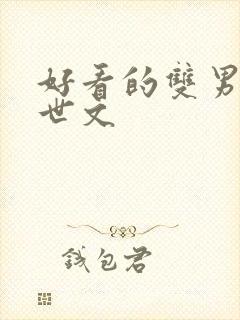 好看的雙男
世文
錢包君